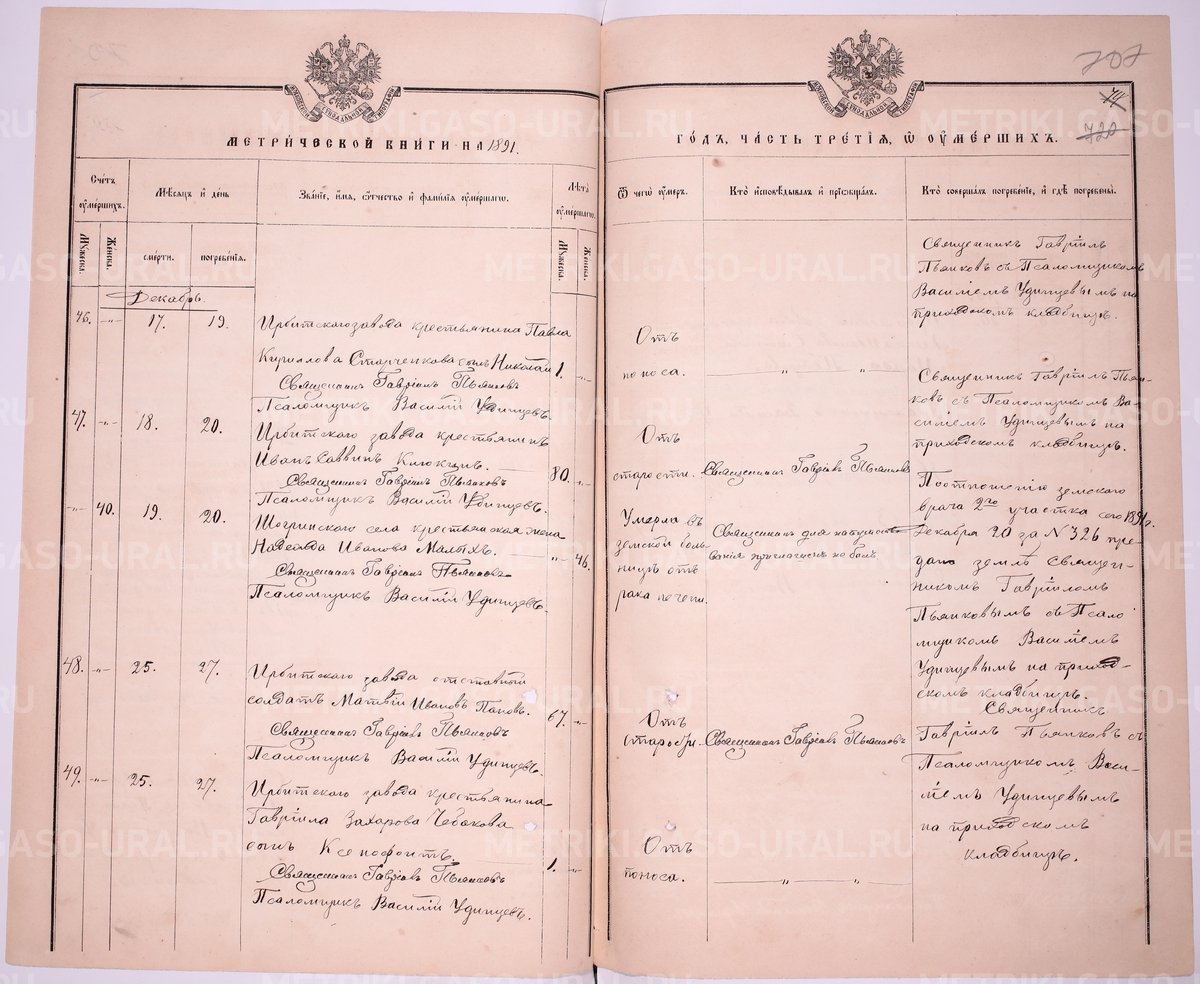 707
74
720
МЕТРИ́ЧЕСКОЙ КНИ́ГИ НА 1891.
ГО́ДЪ, ЧА́СТЬ ТРЕ́ТІѦ, Ѡ ОУМЕ́РШИХЪ.
Сче́тъ оуме́ршихъ.
Мѣ́сѧцъ и де́нь
Зва́нїе, и́мѧ, ѻ҆́тчество и фами́лїѧ оуме́ршагѡ.
Лѣ́та оуме́ршагѡ.
Ѿ чегѡ̀ оу́меръ.
Кто̀ и҆сповѣ́дывалъ и прїѡбща́лъ.
Кто̀ соверша́лъ погребе́нїе, и гдѣ̀ погребены̀.
Мꙋ́жеска.
Же́нска.
сме́рти.
погребе́нїѧ.
Мꙋ́жеска.
Же́нска.
Декабрь.
46. -"- 17. 19.
Ирбитскаго завода крестьянина Павла
Кириллова Старченкова сынъ Николай 1. -"-
Священникъ Гавріилъ Пьянковъ
Псаломщикъ Василій Удинцевъ.
Отъ
поноса.
Священникъ Гавріилъ
Пьянковъ съ Псаломщикомъ
Василіемъ Удинцевымъ на
приходскомъ кладбищѣ.
47. -"- 18. 20.
Ирбитскаго завода крестьянинъ
Иванъ Саввинъ Клюкинъ. 80. -"-
Священникъ Гавріилъ Пьянковъ
Псаломщикъ Василій Удинцевъ.
Отъ
старости.
Священникъ Гавріилъ Пьянковъ
Священникъ Гавріилъ Пьян-
ковъ съ Псаломщикомъ Ва-
силіемъ Удинцевымъ на
приходскомъ кладбищѣ.
-"- 40. 19. 20.
Шогринскаго села крестьянская жена
Надежда Иванова Малыхъ. -"- 46.
Священникъ Гавріилъ Пьянковъ
Псаломщикъ Василій Удинцевъ.
Умерла въ
земской боль-
ницѣ отъ
рака печени.
Священникъ для напутство-
ванія приглашенъ не былъ
По отношенію земского
врача 2го участка сего 1891 г.
Декабря 20 за N 326 пре-
дано землѣ Священ-
никомъ Гавріиломъ
Пьянковымъ съ Псало
мщикомъ Василіемъ
Удинцевымъ на приход-
скомъ кладбищѣ.
48. -"- 25. 27.
Ирбитскаго завода отставный
солдатъ Матвѣй Ивановъ Пановъ. 67. -"-
Священникъ Гавріилъ Пьянковъ
Псаломщикъ Василій Удинцевъ.
Отъ
старости.
Священникъ Гавріилъ Пьянковъ
Священникъ
Гавріилъ Пьянковъ съ
Псаломщикомъ Васи-
ліемъ Удинцевымъ
на приходскомъ
кладбищѣ.
49. -"- 25. 27.
Ирбитскаго завода крестьянина
Гавріила Захарова Чебакова
сынъ Ксенофонтъ. 1. -"-
Священникъ Гавріилъ Пьянковъ
Псаломщикъ Василій Удинцевъ.
Отъ
поноса.
METRIKI.GASO-URAL.RU